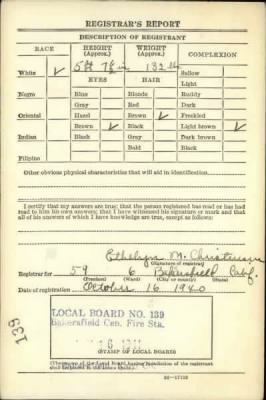 REGISTRAR'S REPORT
DESCRIPTION OF REGISTRANT
RACE HEIGHT (Approx.) WEIGHT (Approx.) COMPLEXION
5 ft 7½ in 132 lb Sallow
White ✓ Light
EYES HAIR
Negro Blue Blonde Ruddy
Gray Red Dark
Oriental Hazel Brown ✓ Freckled
Brown ✓ Black Light brown ✓
Indian Black Gray Dark brown
Bald Black
Filipino
Other obvious physical characteristics that will aid in identification
I certify that my answers are true; that the person registered has read or has had
read to him his own answers; that I have witnessed his signature or mark and that
all of his answers of which I have knowledge are true, except as follows:
Ethelyn M. Christensen
(Signature of registrar)
Registrar for 59 6 Bakersfield Calif.
(Precinct) (Ward) (City or county) (State)
Date of registration October 16 1940
LOCAL BOARD NO. 139
Bakersfield Cen. Fire Sta.
(STAMP OF LOCAL BOARD)
(The stamp of the Local Board having jurisdiction of the registrant
shall be placed in the above space.)
139